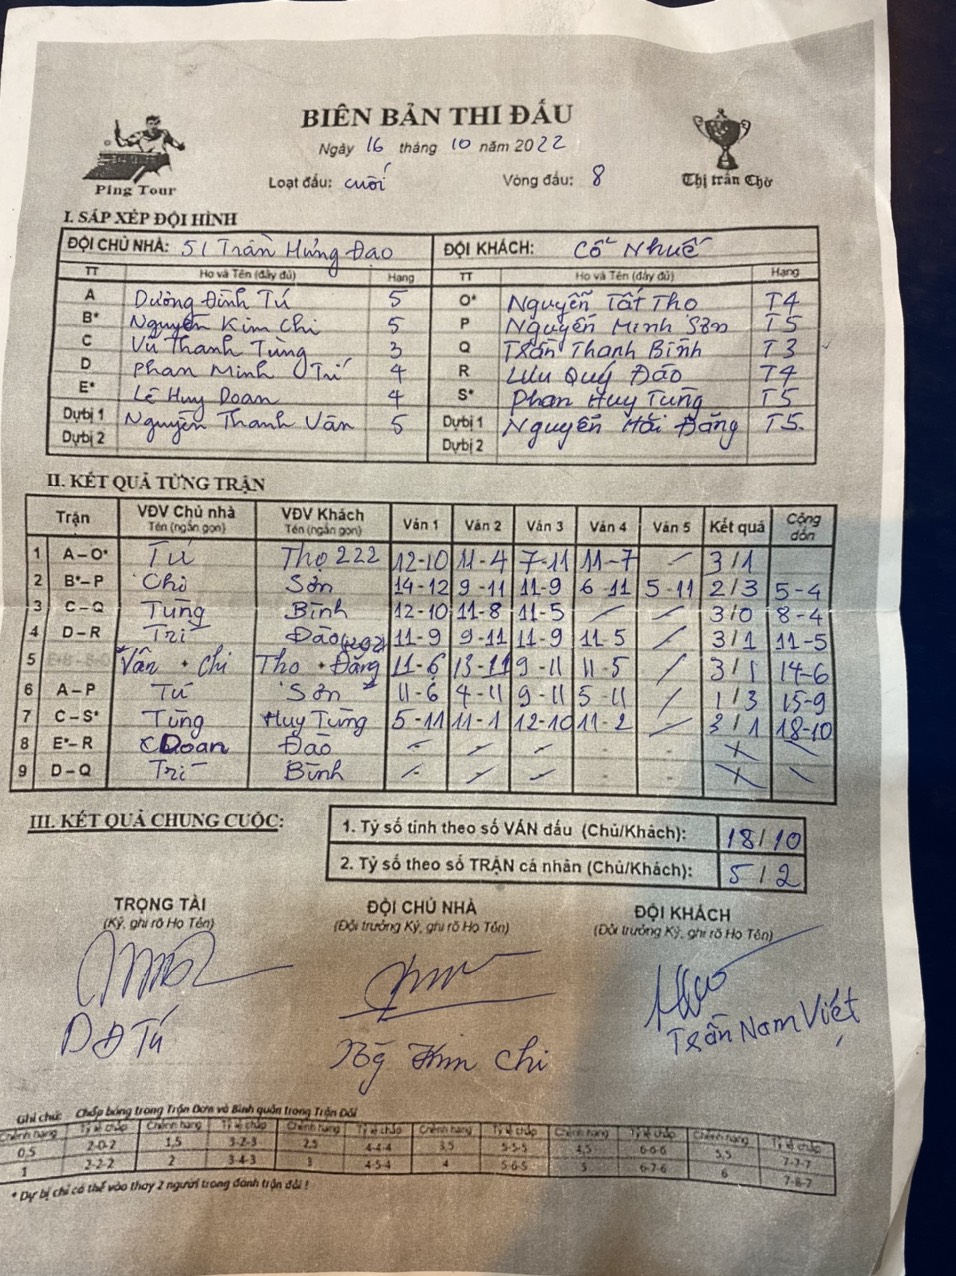 BIÊN BẢN THI ĐẤU
Ngày 16 tháng 10 năm 2022
Ping Tour
Loạt đấu: cuối Vòng đấu: 8
Thị trấn Chờ
I. SẮP XẾP ĐỘI HÌNH
ĐỘI CHỦ NHÀ: 51 Trần Hưng Đạo ĐỘI KHÁCH: Cổ Nhuế
TT Họ và Tên (đầy đủ) Hạng TT Họ và Tên (đầy đủ) Hạng
A Dương Đình Tú 5 O* Nguyễn Tất Thọ T4
B* Nguyễn Kim Chi 5 P Nguyễn Minh Sơn T5
C Vũ Thanh Tùng 3 Q Trần Thanh Bình T3
D Phan Minh Trí 4 R Lưu Quý Đảo T4
E* Lê Huy Doan 4 S* Phan Huy Tùng T5
Dự bị 1 Nguyễn Thanh Vân 5 Dự bị 1 Nguyễn Hải Đăng T5.
Dự bị 2 Dự bị 2
II. KẾT QUẢ TỪNG TRẬN
Trận VĐV Chủ nhà Tên (ngắn gọn) VĐV Khách Tên (ngắn gọn) Ván 1 Ván 2 Ván 3 Ván 4 Ván 5 Kết quả Cộng dồn
1 A – O* Tú Thọ 222 12-10 11-4 7-11 11-7 / 3/1
2 B* – P Chi Sơn 14-12 9-11 11-9 6-11 5-11 2/3 5-4
3 C – Q Tùng Bình 12-10 11-8 11-5 / / 3/0 8-4
4 D – R Trí Đảo 11-9 9-11 11-9 11-5 / 3/1 11-5
5 Vân + Chi Thọ + Đăng 11-6 13-11 9-11 11-5 / 3/1 14-6
6 A – P Tú Sơn 11-6 4-11 9-11 5-11 / 1/3 15-9
7 C – S* Tùng Huy Tùng 5-11 11-1 12-10 11-2 / 3/1 18-10
8 E* – R Doan Đảo / / / X \
9 D – Q Trí Bình / / / X \
III. KẾT QUẢ CHUNG CUỘC:
1. Tỷ số tính theo số VÁN đấu (Chủ/Khách): 18/10
2. Tỷ số theo số TRẬN cá nhân (Chủ/Khách): 5/2
TRỌNG TÀI ĐỘI CHỦ NHÀ ĐỘI KHÁCH
(Ký, ghi rõ Họ Tên) (Đội trưởng Ký, ghi rõ Họ Tên) (Đội trưởng Ký, ghi rõ Họ Tên)
DĐ Tú Ng Kim Chi Trần Nam Việt
Ghi chú: Chấp bóng trong Trận Đơn và Bình quân trong Trận Đôi
Chênh hạng Tỷ lệ chấp Chênh hạng Tỷ lệ chấp Chênh hạng Tỷ lệ chấp Chênh hạng Tỷ lệ chấp Chênh hạng Tỷ lệ chấp Chênh hạng Tỷ lệ chấp
0,5 2-0-2 1,5 3-2-3 2,5 4-4-4 3,5 5-5-5 4,5 6-6-6 5,5 7-7-7
1 2-2-2 2 3-4-3 3 4-5-4 4 5-6-5 5 6-7-6 6 7-8-7
* Dự bị chỉ có thể vào thay 2 người trong đánh trận đôi !